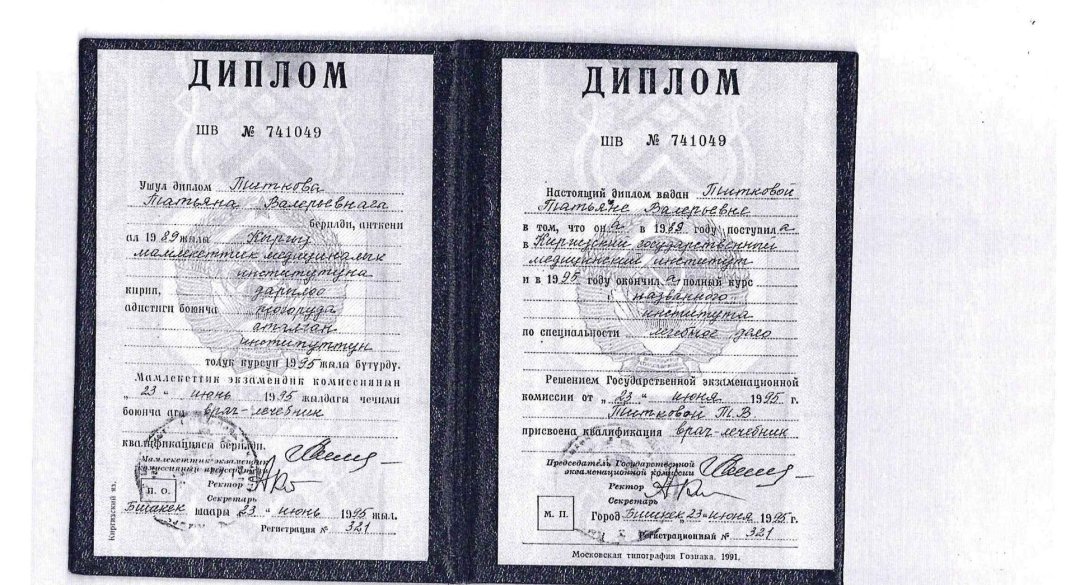 ДИПЛОМ
ШВ № 741049
Ушул диплом Титкова
Татьяна Валерьевнага
берилди, анткени
ал 1989 жылы Кыргыз
мамлекеттик медициналык
институтуна
кирип, дарылоо
адистиги боюнча жогоруда
аталган
институттун
толук курсун 1995 жылы бүтүрдү.
Мамлекеттик экзамендик комиссиянын
„ 23 “ июнь 1995 жылдагы чечими
боюнча ага врач-лечебник
квалификациясы берилди.
Мамлекеттик экзамендик
комиссиянын председатели
Ректор
Секретарь
П. О.
Бишкек шаары 23 “ июнь 1995 жыл.
Регистрация № 321
Киргизский яз.
ДИПЛОМ
ШВ № 741049
Настоящий диплом выдан Титковой
Татьяне Валерьевне
в том, что она в 1989 году поступила
в Киргизский государственный
медицинский институт
и в 1995 году окончила полный курс
названного
института
по специальности лечебное дело
Решением Государственной экзаменационной
комиссии от „ 23 “ июня 1995 г.
Титковой Т.В
присвоена квалификация врач-лечебник
Председатель Государственной
экзаменационной комиссии
Ректор
Секретарь
М. П.
Город Бишкек „ 23 “ июня 1995 г.
Регистрационный № 321
Московская типография Гознака. 1991.